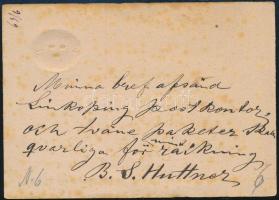 Minna bref afsänd
Linköping postkontor,
och tväne paketer skola
qvarliga för min räkning
B. S. Huttner
N. 6